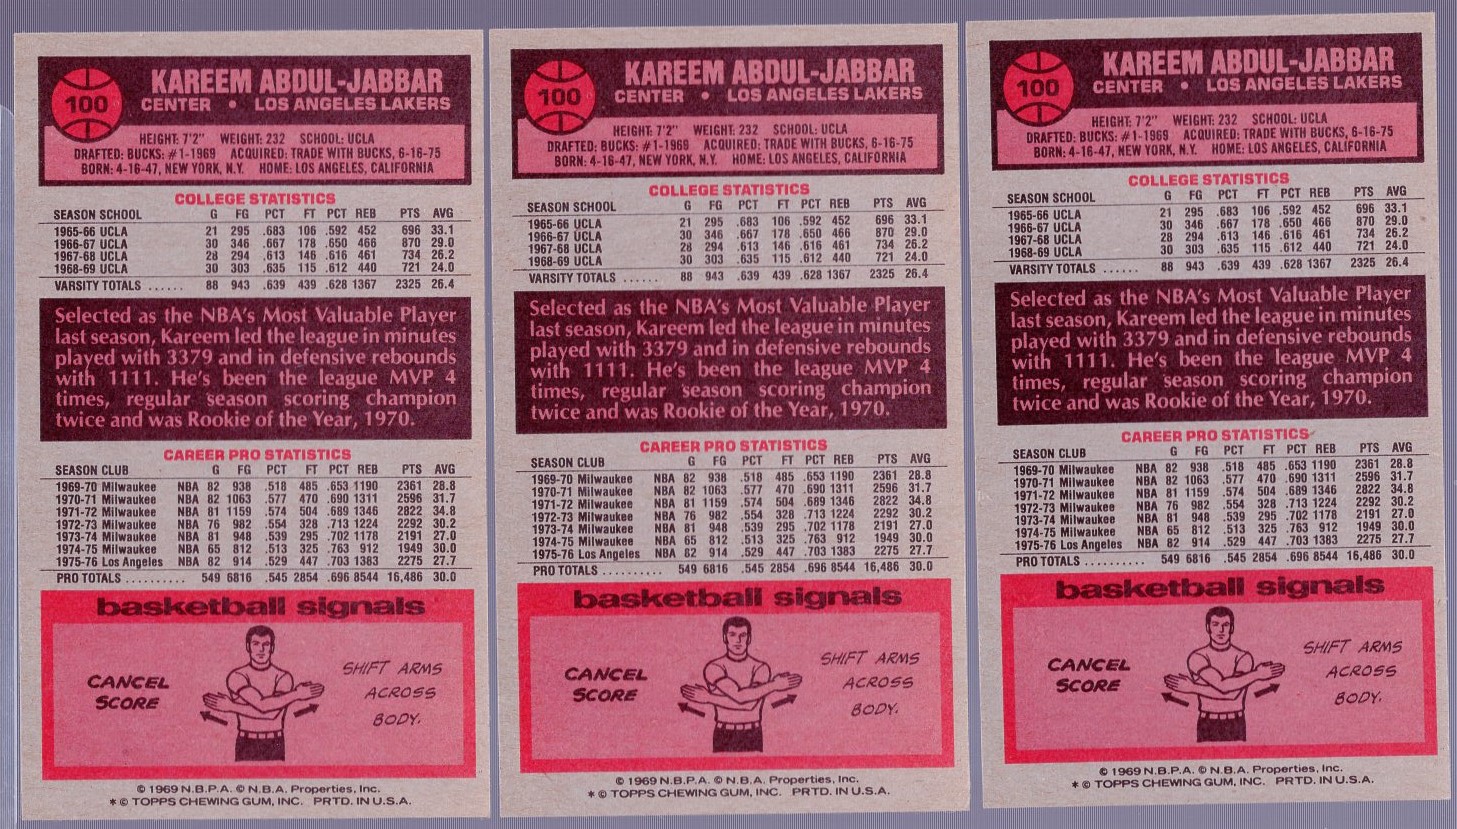 100
KAREEM ABDUL-JABBAR
CENTER • LOS ANGELES LAKERS
HEIGHT: 7'2" WEIGHT: 232 SCHOOL: UCLA
DRAFTED: BUCKS: #1-1969 ACQUIRED: TRADE WITH BUCKS, 6-16-75
BORN: 4-16-47, NEW YORK, N.Y. HOME: LOS ANGELES, CALIFORNIA
COLLEGE STATISTICS
SEASON SCHOOL G FG PCT FT PCT REB PTS AVG
1965-66 UCLA 21 295 .683 106 .592 452 696 33.1
1966-67 UCLA 30 346 .667 178 .650 466 870 29.0
1967-68 UCLA 28 294 .613 146 .616 461 734 26.2
1968-69 UCLA 30 303 .635 115 .612 440 721 24.0
VARSITY TOTALS ...... 88 943 .639 439 .628 1367 2325 26.4
Selected as the NBA's Most Valuable Player
last season, Kareem led the league in minutes
played with 3379 and in defensive rebounds
with 1111. He's been the league MVP 4
times, regular season scoring champion
twice and was Rookie of the Year, 1970.
CAREER PRO STATISTICS
SEASON CLUB G FG PCT FT PCT REB PTS AVG
1969-70 Milwaukee NBA 82 938 .518 485 .653 1190 2361 28.8
1970-71 Milwaukee NBA 82 1063 .577 470 .690 1311 2596 31.7
1971-72 Milwaukee NBA 81 1159 .574 504 .689 1346 2822 34.8
1972-73 Milwaukee NBA 76 982 .554 328 .713 1224 2292 30.2
1973-74 Milwaukee NBA 81 948 .539 295 .702 1178 2191 27.0
1974-75 Milwaukee NBA 65 812 .513 325 .763 912 1949 30.0
1975-76 Los Angeles NBA 82 914 .529 447 .703 1383 2275 27.7
PRO TOTALS .......... 549 6816 .545 2854 .696 8544 16,486 30.0
basketball signals
CANCEL
SCORE
SHIFT ARMS
ACROSS
BODY.
© 1969 N.B.P.A. © N.B.A. Properties, Inc.
* © TOPPS CHEWING GUM, INC. PRTD. IN U.S.A.
100
KAREEM ABDUL-JABBAR
CENTER • LOS ANGELES LAKERS
HEIGHT: 7'2" WEIGHT: 232 SCHOOL: UCLA
DRAFTED: BUCKS: #1-1969 ACQUIRED: TRADE WITH BUCKS, 6-16-75
BORN: 4-16-47, NEW YORK, N.Y. HOME: LOS ANGELES, CALIFORNIA
COLLEGE STATISTICS
SEASON SCHOOL G FG PCT FT PCT REB PTS AVG
1965-66 UCLA 21 295 .683 106 .592 452 696 33.1
1966-67 UCLA 30 346 .667 178 .650 466 870 29.0
1967-68 UCLA 28 294 .613 146 .616 461 734 26.2
1968-69 UCLA 30 303 .635 115 .612 440 721 24.0
VARSITY TOTALS ...... 88 943 .639 439 .628 1367 2325 26.4
Selected as the NBA's Most Valuable Player
last season, Kareem led the league in minutes
played with 3379 and in defensive rebounds
with 1111. He's been the league MVP 4
times, regular season scoring champion
twice and was Rookie of the Year, 1970.
CAREER PRO STATISTICS
SEASON CLUB G FG PCT FT PCT REB PTS AVG
1969-70 Milwaukee NBA 82 938 .518 485 .653 1190 2361 28.8
1970-71 Milwaukee NBA 82 1063 .577 470 .690 1311 2596 31.7
1971-72 Milwaukee NBA 81 1159 .574 504 .689 1346 2822 34.8
1972-73 Milwaukee NBA 76 982 .554 328 .713 1224 2292 30.2
1973-74 Milwaukee NBA 81 948 .539 295 .702 1178 2191 27.0
1974-75 Milwaukee NBA 65 812 .513 325 .763 912 1949 30.0
1975-76 Los Angeles NBA 82 914 .529 447 .703 1383 2275 27.7
PRO TOTALS .......... 549 6816 .545 2854 .696 8544 16,486 30.0
basketball signals
CANCEL
SCORE
SHIFT ARMS
ACROSS
BODY.
© 1969 N.B.P.A. © N.B.A. Properties, Inc.
* © TOPPS CHEWING GUM, INC. PRTD. IN U.S.A.
100
KAREEM ABDUL-JABBAR
CENTER • LOS ANGELES LAKERS
HEIGHT: 7'2" WEIGHT: 232 SCHOOL: UCLA
DRAFTED: BUCKS: #1-1969 ACQUIRED: TRADE WITH BUCKS, 6-16-75
BORN: 4-16-47, NEW YORK, N.Y. HOME: LOS ANGELES, CALIFORNIA
COLLEGE STATISTICS
SEASON SCHOOL G FG PCT FT PCT REB PTS AVG
1965-66 UCLA 21 295 .683 106 .592 452 696 33.1
1966-67 UCLA 30 346 .667 178 .650 466 870 29.0
1967-68 UCLA 28 294 .613 146 .616 461 734 26.2
1968-69 UCLA 30 303 .635 115 .612 440 721 24.0
VARSITY TOTALS ...... 88 943 .639 439 .628 1367 2325 26.4
Selected as the NBA's Most Valuable Player
last season, Kareem led the league in minutes
played with 3379 and in defensive rebounds
with 1111. He's been the league MVP 4
times, regular season scoring champion
twice and was Rookie of the Year, 1970.
CAREER PRO STATISTICS
SEASON CLUB G FG PCT FT PCT REB PTS AVG
1969-70 Milwaukee NBA 82 938 .518 485 .653 1190 2361 28.8
1970-71 Milwaukee NBA 82 1063 .577 470 .690 1311 2596 31.7
1971-72 Milwaukee NBA 81 1159 .574 504 .689 1346 2822 34.8
1972-73 Milwaukee NBA 76 982 .554 328 .713 1224 2292 30.2
1973-74 Milwaukee NBA 81 948 .539 295 .702 1178 2191 27.0
1974-75 Milwaukee NBA 65 812 .513 325 .763 912 1949 30.0
1975-76 Los Angeles NBA 82 914 .529 447 .703 1383 2275 27.7
PRO TOTALS .......... 549 6816 .545 2854 .696 8544 16,486 30.0
basketball signals
CANCEL
SCORE
SHIFT ARMS
ACROSS
BODY.
© 1969 N.B.P.A. © N.B.A. Properties, Inc.
* © TOPPS CHEWING GUM, INC. PRTD. IN U.S.A.